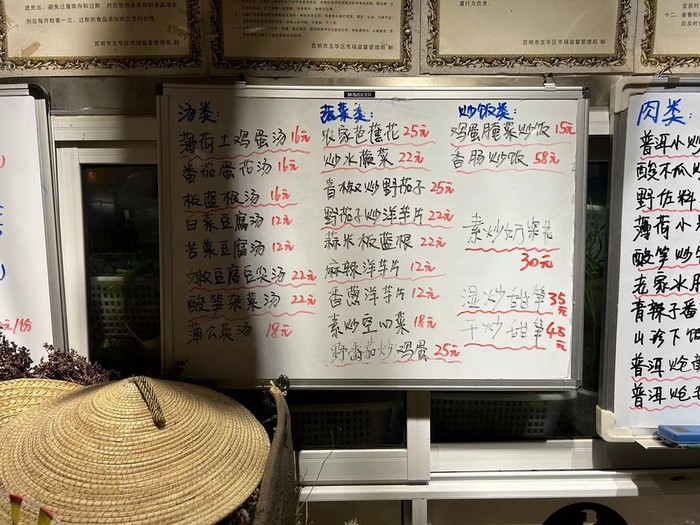 昆明市五华区市场监督管理局 制
昆明市五华区市场监督管理局 制
昆明市五华区市场监督管理局 制
汤类:
薄荷土鸡蛋汤 16元
番茄蛋花汤 16元
板蓝根汤 16元
白菜豆腐汤 12元
苦菜豆腐汤 12元
嫩豆腐豆尖汤 22元
酸笋杂菜汤 22元
蒲公英汤 18元
蔬菜类:
农家芭蕉花 25元
炒水酸菜 22元
青椒炒野茄子 25元
野茄子炒洋芋片 22元
蒜米板蓝根 22元
麻辣洋芋片 12元
香葱洋芋片 12元
素炒空心菜 18元
野番茄炒鸡蛋 25元
炒饭类:
鸡蛋腌菜炒饭 15元
香肠炒饭 58元
30元
湿炒甜笋 35元
干炒甜笋 45元
肉类:
普洱小炒
酸木瓜
野佐料
薄荷小
酸笋炒
老家水
青辣子番
山珍下饭
普洱炝
普洱炝
元/份